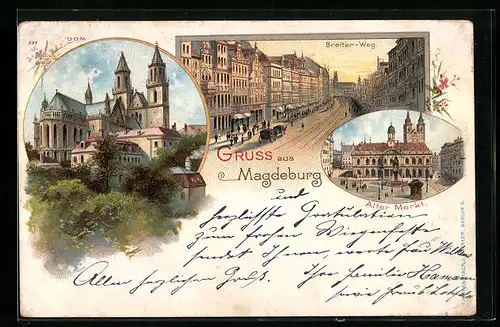 DOM
Breiter-Weg
GRUSS aus
Magdeburg
Alter Markt.
und
herzlichste Gratulation
zum frohen Wiegenfeste
sendet Ihnen, werte Frau
Allen herzlichen Gruß. Ihre Familie Hamann
sowie